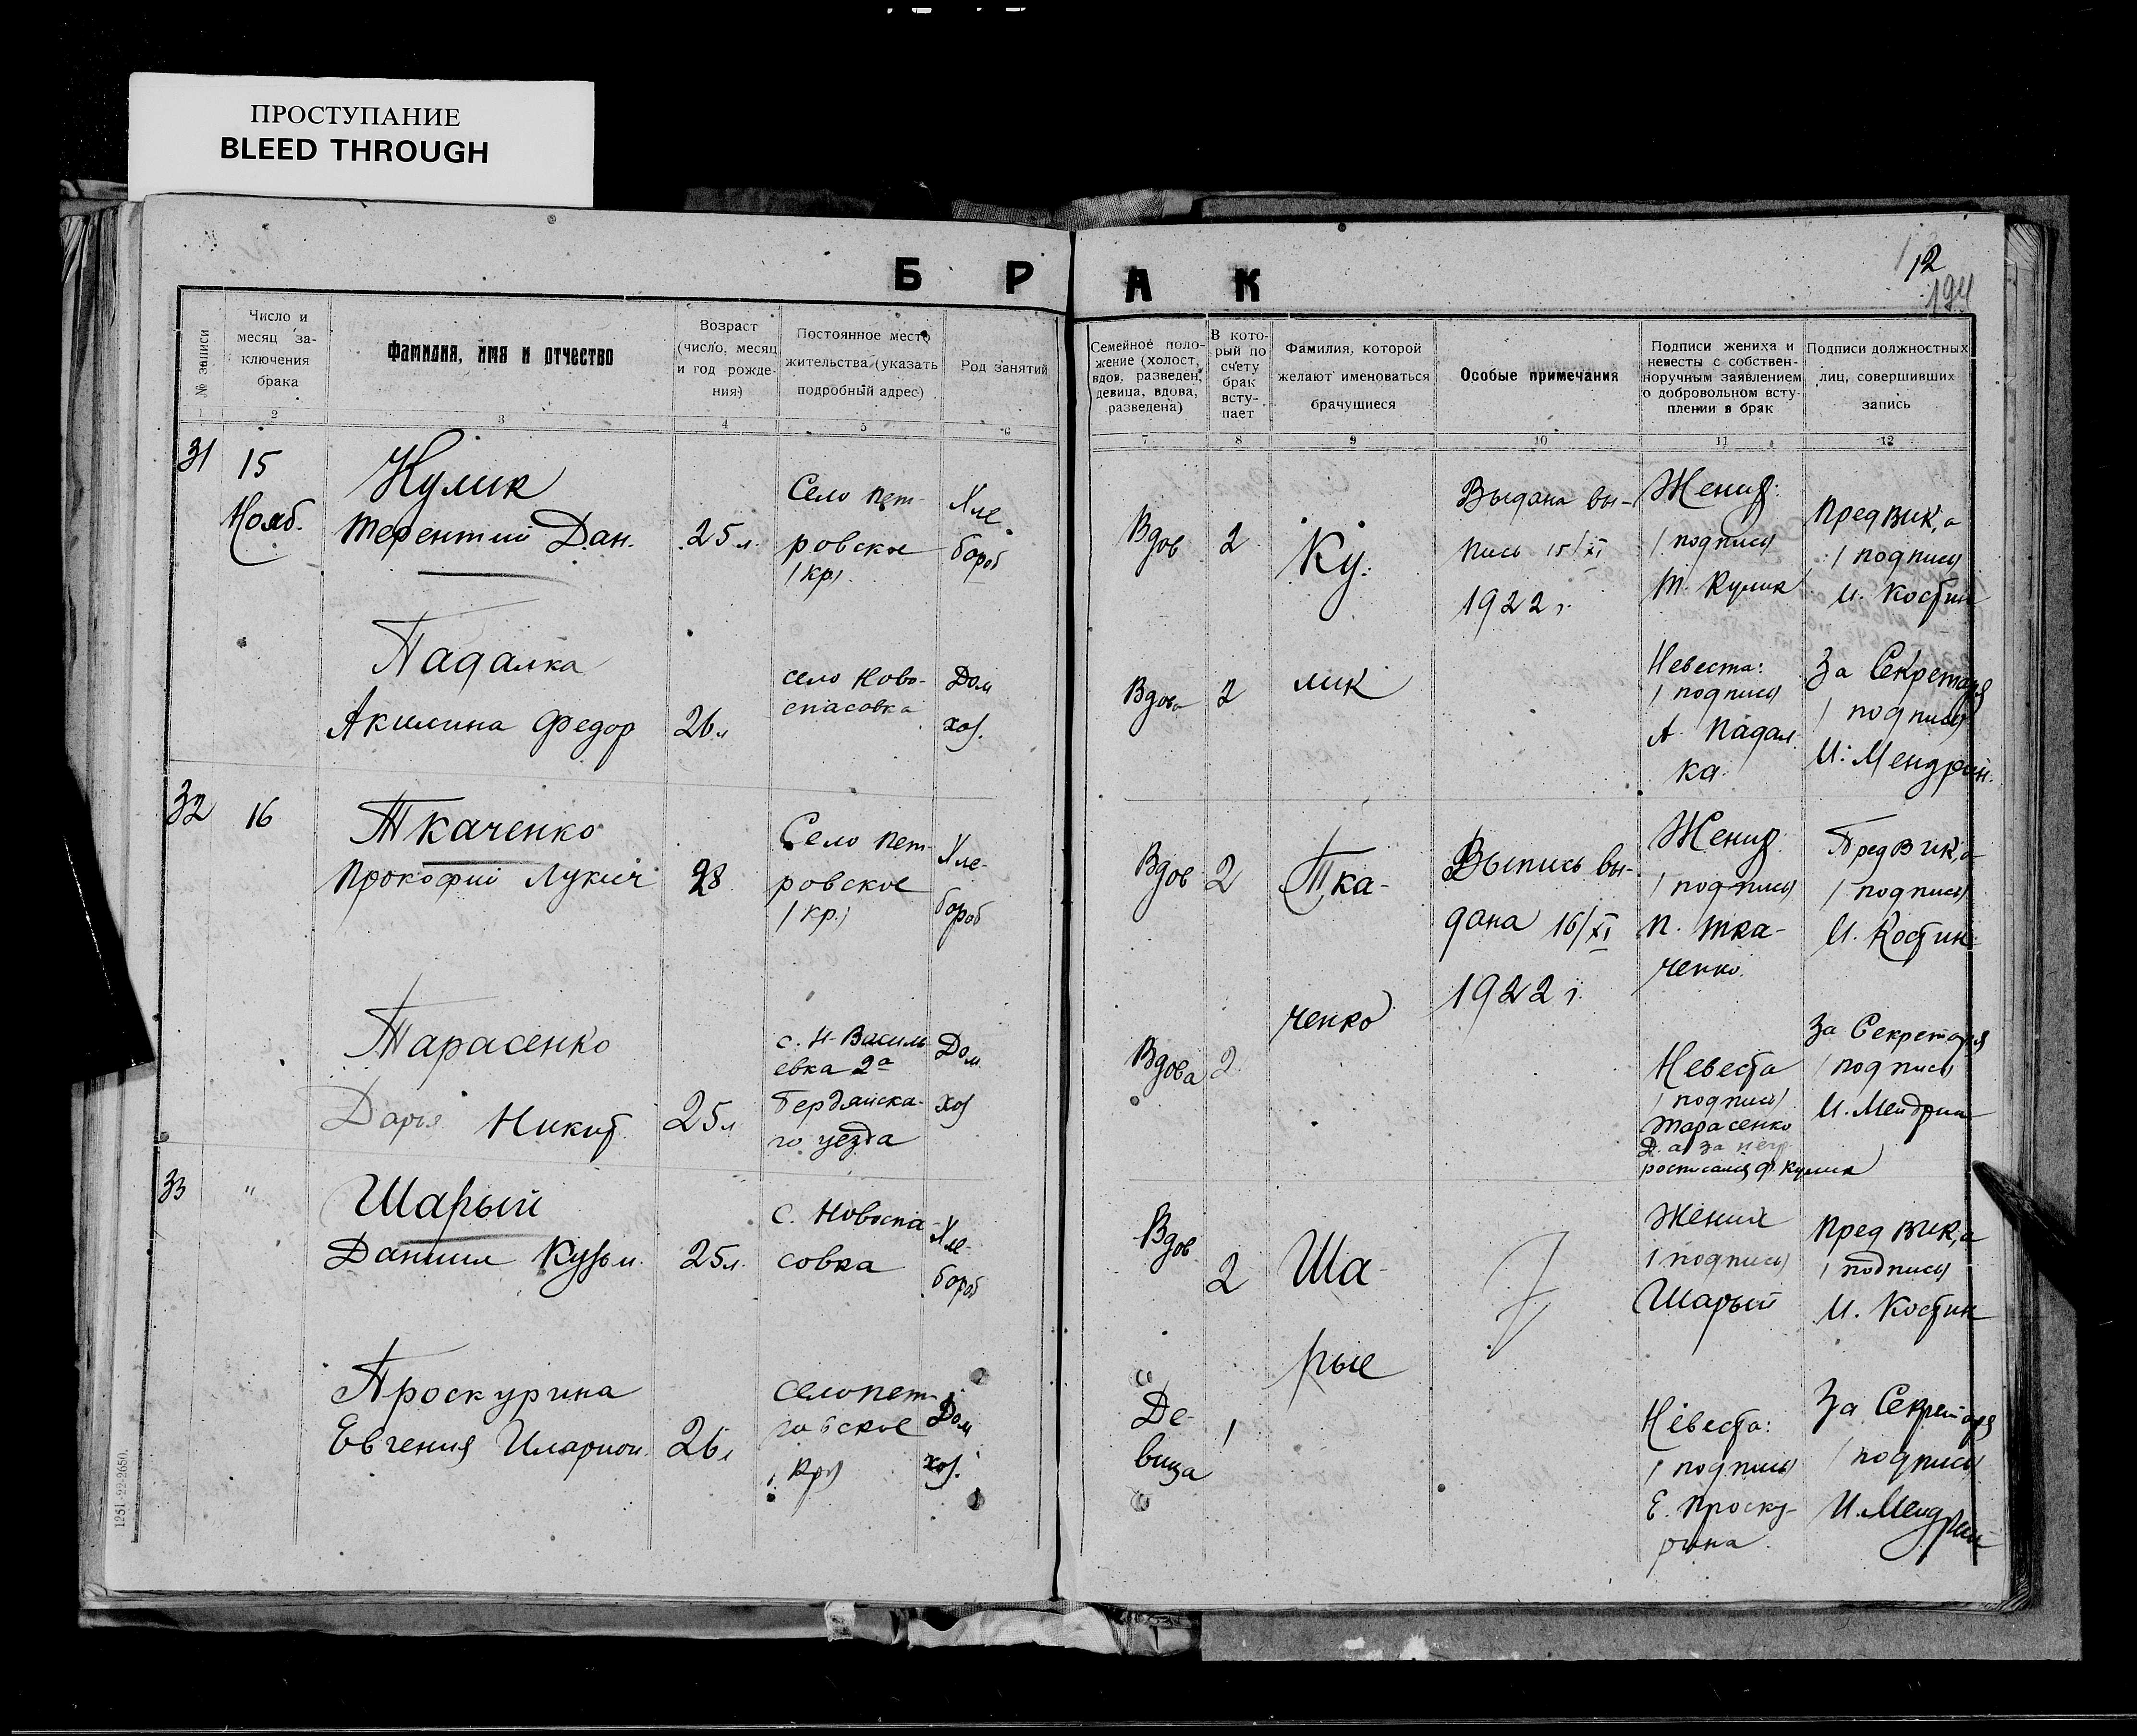 ПРОСТУПАНИЕ
BLEED THROUGH
БРАК
12
194
№ записи
Число и месяц за-
ключения
брака
Фамилия, имя и отчество
Возраст
(число, месяц
и год рожде-
ния)
Постоянное место
жительства (указать
подробный адрес)
Род занятий
Семейное поло-
жение (холост,
вдов, разведен,
девица, вдова,
разведена)
В кото-
рый по
счету
брак
всту-
пает
Фамилия, которой
желают именоваться
брачущиеся
Особые примечания
Подписи жениха и
невесты с собствен-
норучным заявлением
о добровольном всту-
плении в брак
Подписи должностных
лиц, совершивших
запись
1 2 3 4 5 6 7 8 9 10 11 12
31
15
Нояб.
Кулик
Терентий Дан.
25 л.
Село Пет-
ровское
(кр)
Хле-
бороб
Вдов
2
Ку-
Выдана вы-
пись 15/XI
1922 г.
Жених:
(подпись)
Т. Кулик
Предвик,а
(подпись)
И. Костин
Падалка
Акилина Федор
26 л
село Ново-
спасовка
Дом
хоз.
Вдова
2
лик
Невеста:
(подпись)
А. Падал-
ка.
За Секретаря
(подпись)
И. Мендрин.
32
16
Ткаченко
Прокофий Лукич
28
Село Пет-
ровское
(кр.)
Хле-
бороб
Вдов
2
Тка-
Выпись вы-
дана 16/XI
1922 г.
Жених
(подпись)
П. Тка-
ченко.
Предвик,а
(подпись)
И. Костин
Тарасенко
Дарья Никит.
25 л
с. Н-Василь
евка 2а
Бердянска-
го уезда
Дом.
хоз
Вдова
2
ченко
Невеста
(подпись)
Тарасенко
Д. а за нея
росписался Ф. Кулик
За Секретаря
(подпись)
И. Мендрин
33
"
Шарый
Даниил Кузьм.
25 л.
с. Новоспа-
совка
Хле-
бороб
Вдов
2
Ша-
Жених
(подпись)
Шарый
Предвик,а
(подпись)
И. Костин
Проскурина
Евгения Иларион.
26 л
село Пет-
ровское
(кр)
Дом
хоз.
Де-
вица
1
рые
Невеста:
(подпись)
Е. Проску-
рина.
За Секретаря
(подпись)
И. Мендрин
1251-22-2650.